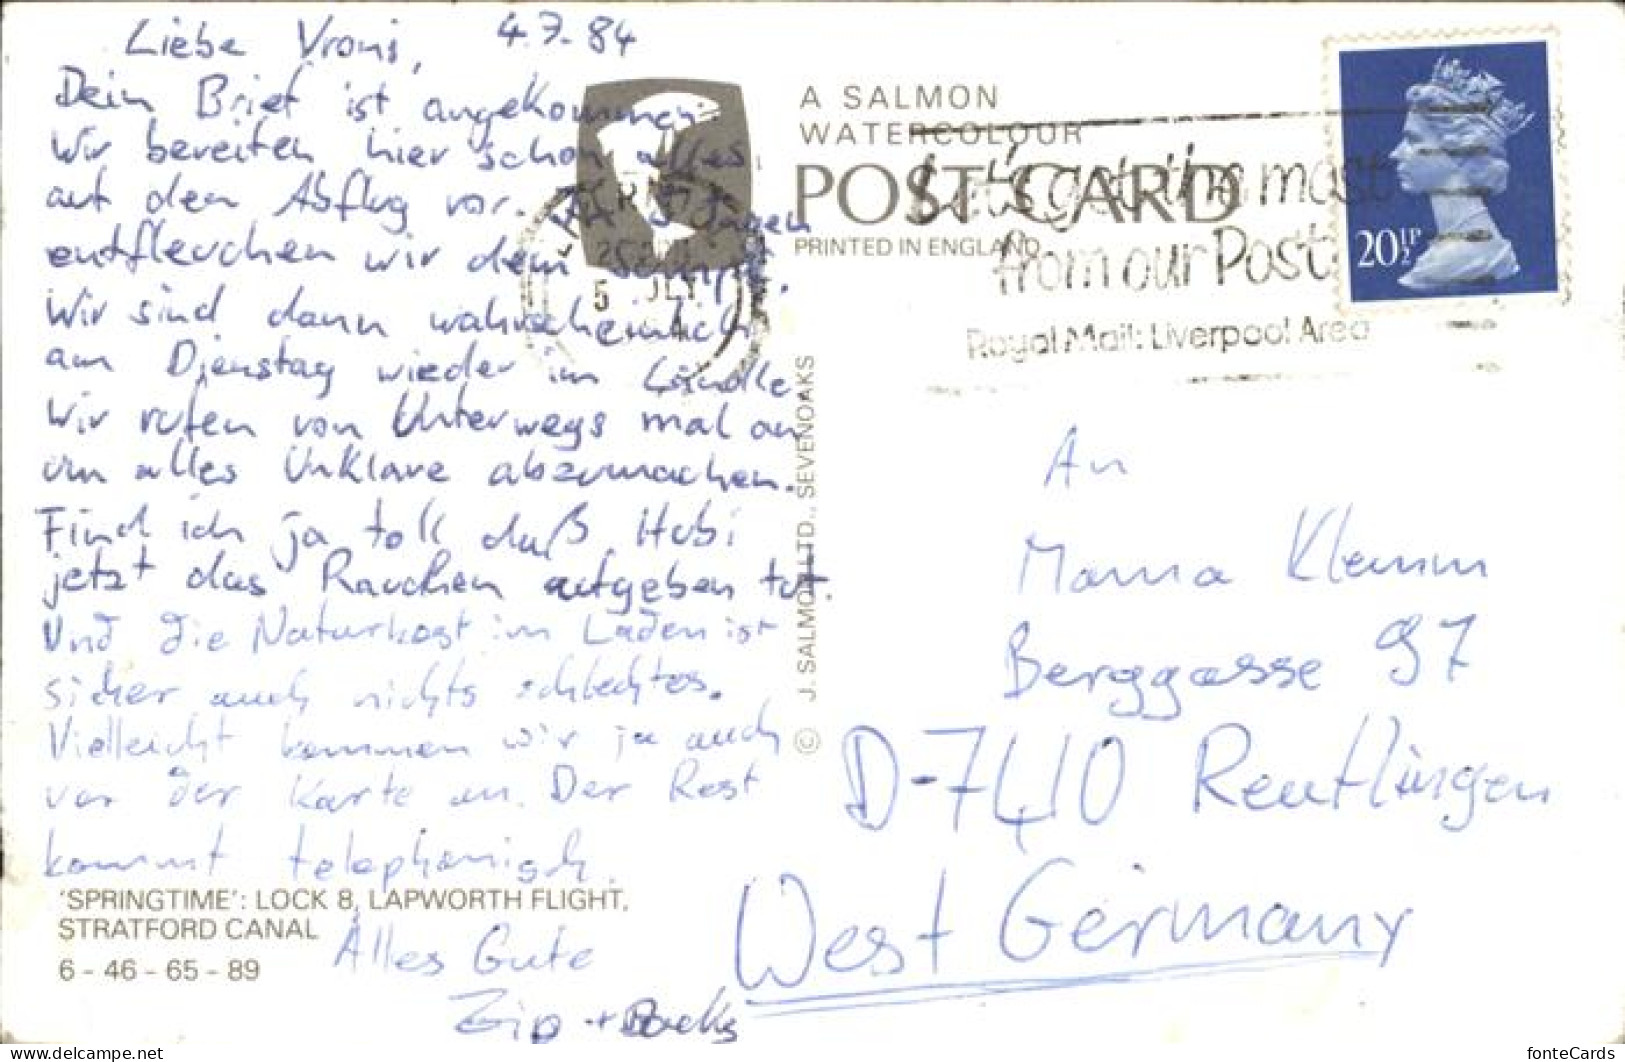 Liebe Vronis, 4.7.84
Dein Brief ist angekommen.
Wir bereiten hier schon alles
auf den Abflug vor. In 3 Tagen
entfleuchen wir dem Sumpf.
Wir sind dann wahrscheinlich
am Dienstag wieder im Ländle.
Wir rufen von Unterwegs mal an
um alles Unklare abzumachen.
Find ich ja toll daß Hubi
jetzt das Rauchen aufgeben tut.
Und die Naturkost im Laden ist
sicher auch nichts schlechtes.
Vielleicht kommen wir ja auch
vor der Karte an. Der Rest
kommt telephonisch.
Alles Gute
Zip +
'SPRINGTIME': LOCK 8, LAPWORTH FLIGHT,
STRATFORD CANAL
6 - 46 - 65 - 89
© J. SALMON LTD., SEVENOAKS
A SALMON
WATERCOLOUR
POST CARD
PRINTED IN ENGLAND
5 JLY
Let's get the most
from our Post
Royal Mail: Liverpool Area
20½P
An
Mama Klemm
Berggasse 97
D-7410 Reutlingen
West Germany
fonteCards
www.delcampe.net